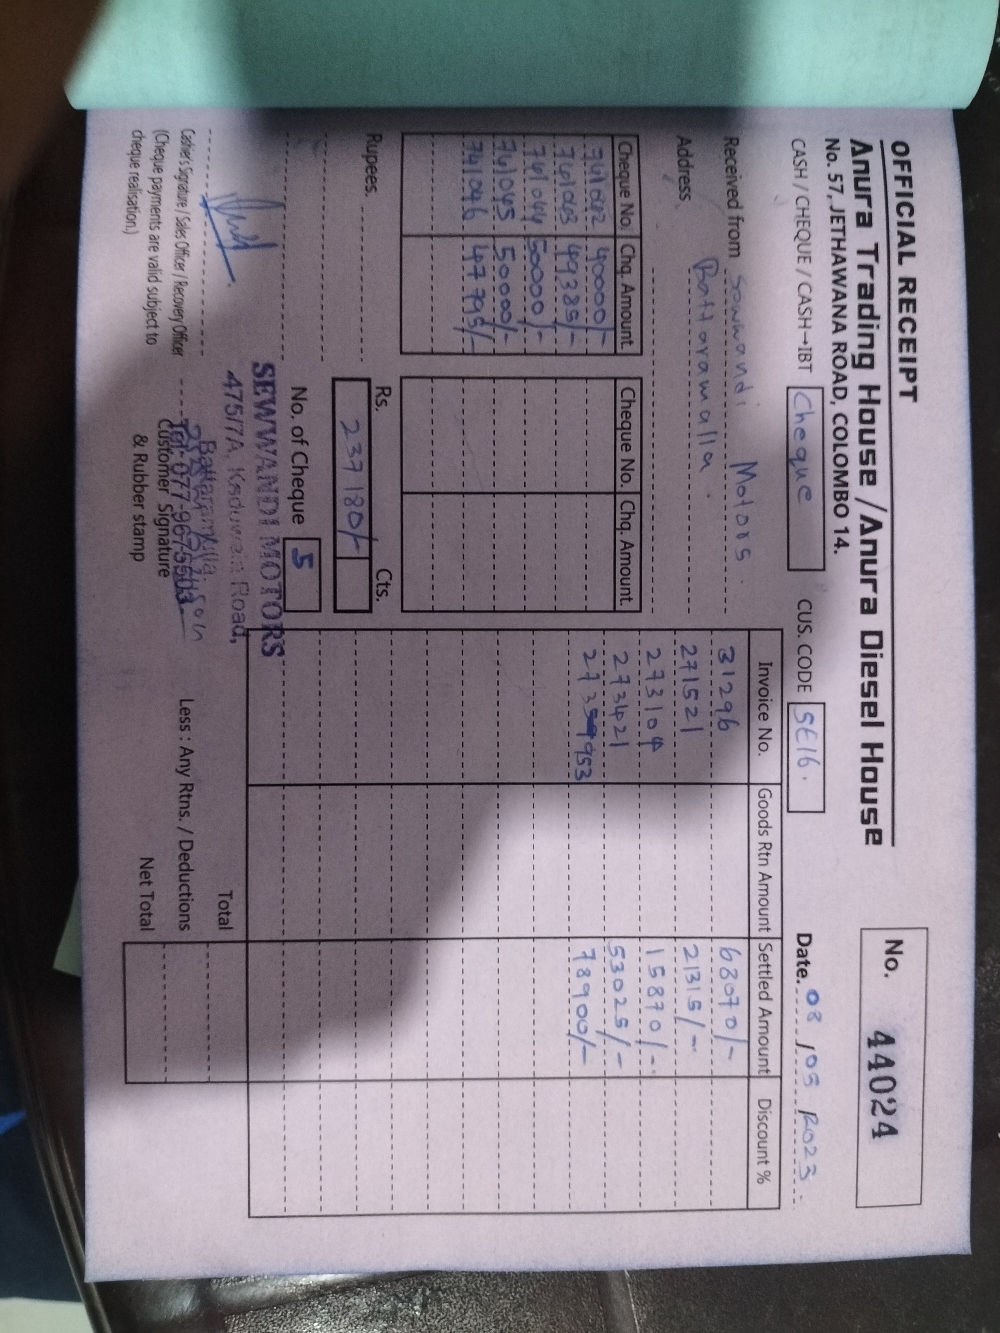 OFFICIAL RECEIPT
Anura Trading House / Anura Diesel House
No. 57, JETHAWANA ROAD, COLOMBO 14.
No. 44024
CASH / CHEQUE / CASH→IBT Cheque CUS. CODE SE16. Date. 08 / 05 2023
Received from Sewwandi Motors
Address Battaramulla.
Cheque No. Chq. Amount Cheque No. Chq. Amount
741042 40000/-
741043 49385/-
741044 50000/-
741045 50000/-
741046 47795/-
Rupees. Rs. Cts.
237180/-
No. of Cheque 5
Invoice No. Goods Rtn Amount Settled Amount Discount %
31296 68070/-
271521 21315/-
273104 15870/-
273421 53025/-
273953 78900/-
Total
Less : Any Rtns. / Deductions
Net Total
SEWWANDI MOTORS
475/7A, Kaduwela Road,
Battaramulla.
Tel: 077-9675503
Cashier's Signature / Sales Officer / Recovery Officer
(Cheque payments are valid subject to
cheque realisation.)
Customer Signature
& Rubber stamp